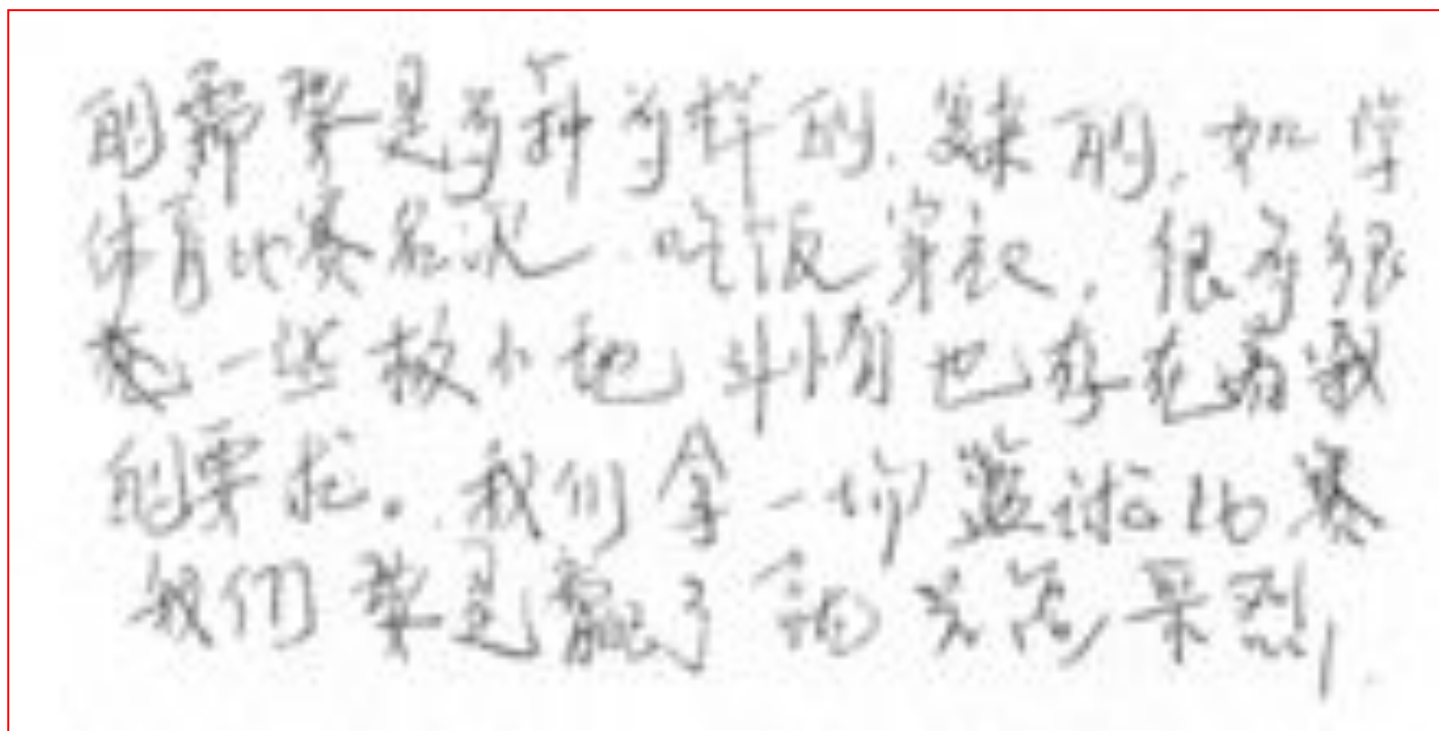 的需要是多种多样的，美味的，如学
体育比赛名次，吃饭穿衣，很多很
一些极小地 事情也存在着我
的要求。我们拿一场篮球比赛
我们要是赢了 就